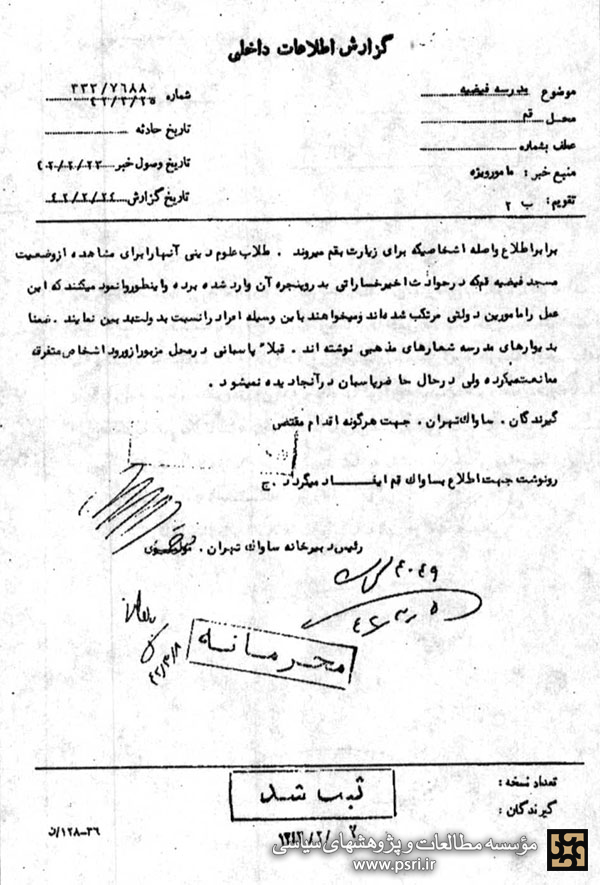 گزارش اطلاعات داخلی
موضوع مدرسه فیضیه
محل قم
عطف بشماره
منبع خبر : مامورویژه
تقویم : ب ۲
شماره ۳۳۲/۷۶۸۸
۴۲/۲/۲۵
تاریخ حادثه
تاریخ وصول خبر ۴۲/۲/۲۳
تاریخ گزارش ۴۲/۲/۲۴
برابر اطلاع واصله اشخاصیکه برای زیارت بقم میروند . طلاب علوم دینی آنها را برای مشاهده از وضعیت
مسجد فیضیه قم که در حوادث اخیر خساراتی بدر و پنجره آن وارد شده برده و اینطور وانمود میکنند که این
عمل را مامورین دولتی مرتکب شده‌اند و میخواهند باین وسیله افراد را نسبت بدولت بدبین نمایند . ضمنا
بدیوارهای مدرسه شعارهای مذهبی نوشته اند . قبلا پاسبانی در محل مزبور از ورود اشخاص متفرقه
ممانعت میکرده ولی در حال حاضر پاسبان در آنجا دیده نمیشود .
گیرندگان . ساواک تهران . جهت هرگونه اقدام مقتضی
رونوشت جهت اطلاع بساواک قم ایفاد میگردد . ج
رئیس دبیرخانه ساواک تهران .
۴۰۴۹
۴۲/۳/۸
محرمانه
تعداد نسخه :
گیرندگان :
ثبت شد
۱۳۴۲/۲/
۳۶-۱۲۸/ن
مؤسسه مطالعات و پژوهشهای سیاسی
www.psri.ir